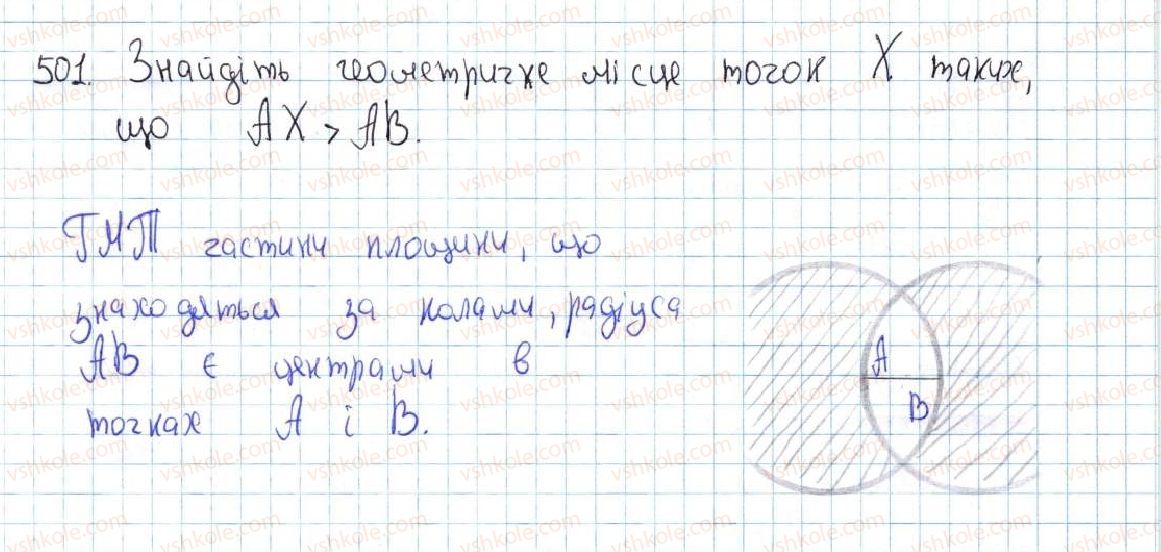 501. Знайдіть геометричне місце точок X таких,
що AX > AB.
ГМТ частини площини, що
знаходяться за колами, радіуса
AB є центрами в
точках A і B.
A
B